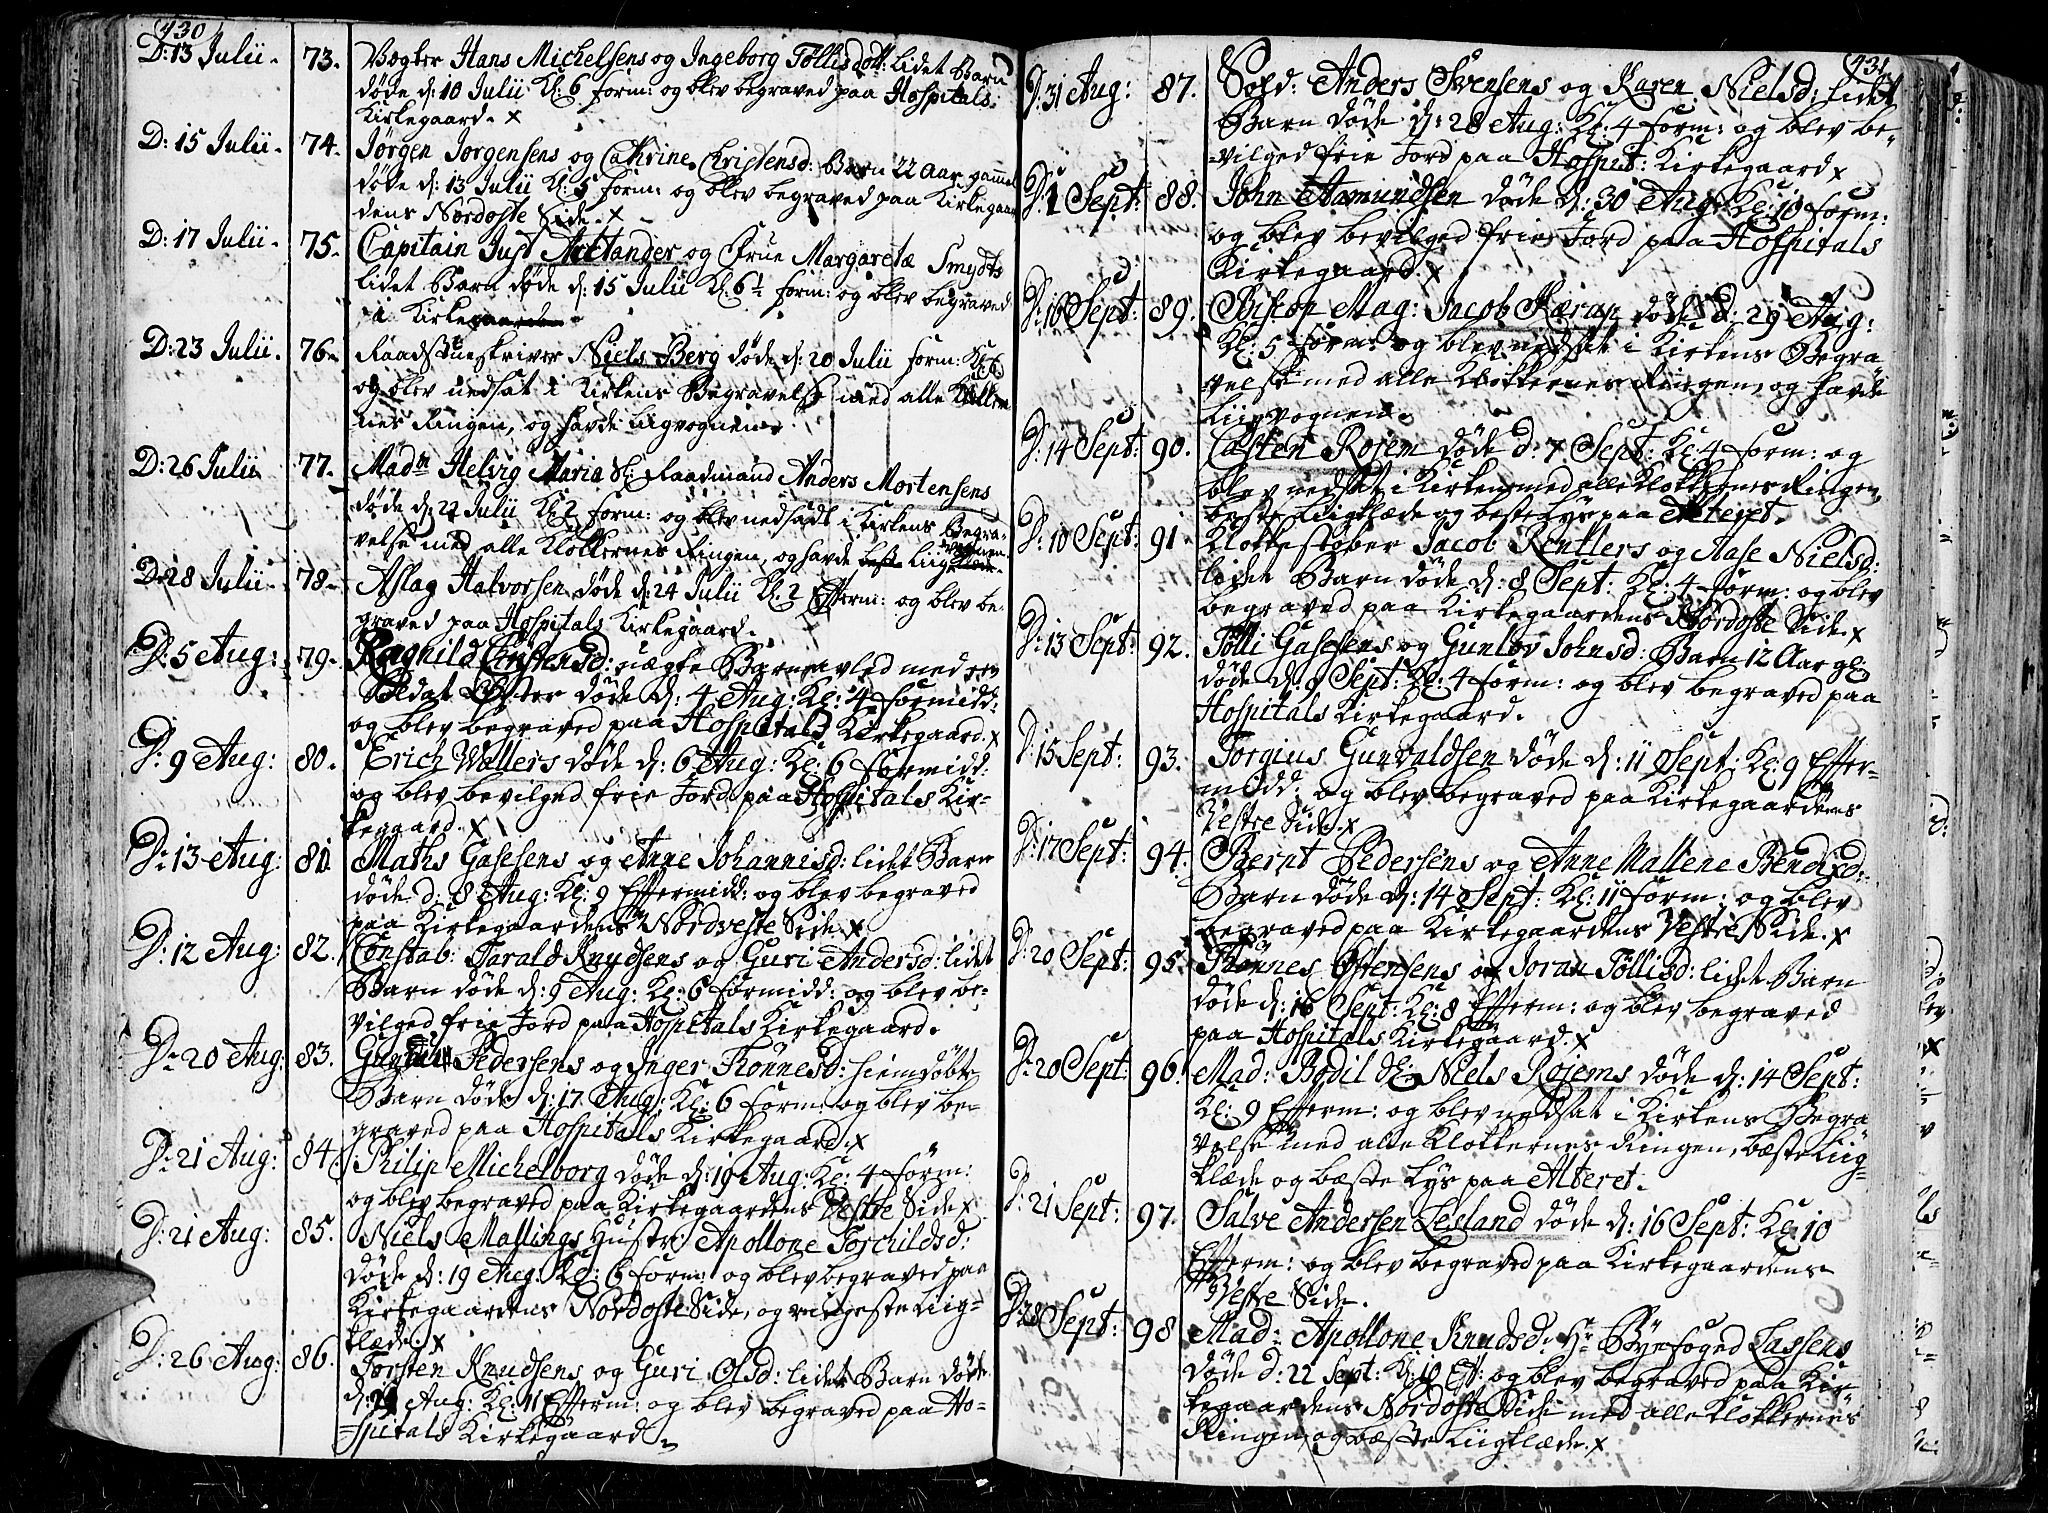 430
D: 13 Julii. 73. Vogter Hans Michelsens og Ingeborg Tøllisdott: lidet Barn
døde d: 10 Julii Kl: 6 form: og blev begraved paa Hospitals
Kirkegaard. x
D: 15 Julii. 74. Jørgen Jørgensens og Cathrine Christensd: Barn 22 Aar gammel
døde d: 13 Julii Kl: 5 form: og blev begraved paa Kirkegaar
dens Nordoste Side. x
D: 17 Julii. 75. Capitain Just Arctander og Frue Margaretæ Smydts
lidet Barn døde d: 15 Julii Kl: 6½ form: og blev begraved
i Kirkegaarden
D: 23 Julii. 76. Raadstueskriver Niels Berg døde d: 20 Julii form: Kl 6
og blev nedsat i Kirkens Begravelse med alle
nes Ringen, og havde Liigvognen.
D: 26 Julii 77. Madm Helvig Maria Sl: Raadmand Anders Mortensens
døde d: 22 Julii Kl 2 form: og blev nedsadt i Kirkens Begra-
velse med alle Klokkernes Ringen, og havde beste Liigvognen.
D: 28 Julii. 78. Aslag Halvorsen døde d: 24 Julii Kl. 2 Efterm: og blev be-
graved paa Hospitals Kirkegaard.
D: 5 Aug: 79. Ragnild Christensd: uægte Barn avled med en
Soldat døde d: 4 Aug: Kl: 4 formidd:
og blev begraved paa Hospitals Kirkegaard. x
D: 9 Aug: 80. Erich Wallers døde d: 6 Aug: Kl: 6 formidd:
og blev bevilged frie Jord paa Hospitals Kir-
kegaard. x
D: 13 Aug: 81. Maths Gasesens og Anne Johannisd: lidet Barn
døde d: 8 Aug: Kl: 9 Eftermidd: og blev begraved
paa Kirkegaardens Nordveste Side. x
D: 12 Aug: 82. Constab: Tarald Knudsens og Guri Andersd: lidet
Barn døde d: 9 Aug: Kl: 6 formidd: og blev be-
vilged frie Jord paa Hospitals Kirkegaard.
D: 20 Aug: 83. Pedersens og Inger Tønnesd: hiemdøbte
Barn døde d: 17 Aug: Kl: 6 form: og blev be-
graved paa Hospitals Kirkegaard. x
D: 21 Aug: 84. Philip Michelborg døde d: 19 Aug: Kl: 4 form:
og blev begraved paa Kirkegaardens Vestre Side x
D: 21 Aug: 85. Niels Mallings Hustr: Apollone Torchildsd:
døde d: 19 Aug: Kl: 6 form: og blev begraved paa
Kirkegaardens Nordoste Side, og ringeste Liig-
klæde. x
D: 26 Aug: 86. Torsten Knudsens og Guri Olsd: lidet Barn døde
d: Aug: Kl: 11 Efterm: og blev begraved paa Ho-
spitals Kirkegaard.
431
D: 31 Aug: 87. Sold: Anders Svensens og Karen Nielsd: lidet
Barn døde d: 28 Aug: Kl: 4 form: og blev be-
vilged frie Jord paa Hospit: Kirkegaard x
D: 1 Sept: 88. John Aamundsen døde d: 30 Aug: Kl: 10 form:
og blev bevilged frie Jord paa Hospitals
Kirkegaard. x
D: 16 Sept: 89. Biskop Mag: Jacob Kærup døde d: 29 Aug:
Kl: 5 form: og blev nedsat i Kirkens Begra
velse med alle Klokkernes Ringen, og havde
Liigvognen.
D: 14 Sept: 90. Casten Rojem døde d: 7 Sept: Kl: 4 form: og
blev nedsat i Kirken med alle Klokkernes Ringen,
beste Liigklæde og beste Lys paa Alteret.
D: 10 Sept: 91. Klokkestøber Jacob Rentlers og Aase Nielsd:
lidet Barn døde d: 8 Sept: Kl: 4 form: og blev
begraved paa Kirkegaardens Nordoste Side. x
D: 13 Sept: 92. Tølli Gasesens og Gunlov Johnsd: Barn 12 Aar gl:
døde d: 9 Sept: Kl: 4 form: og blev begraved paa
Hospitals Kirkegaard.
D: 15 Sept: 93. Torgius Gunvaldsen døde d: 11 Sept: Kl: 9 Efter-
midd: og blev begraved paa Kirkegaardens
Vestre Side. x
D: 17 Sept: 94. Bernt Pedersens og Anne Mallene Bendixd:
Barn døde d: 14 Sept: Kl: 11 form: og blev
begraved paa Kirkegaardens Vestre Side. x
D: 20 Sept: 95. Tønnes Østensens og Joran Tøllisd: lidet Barn
døde d: 16 Sept: Kl: 8 Efterm: og blev begraved
paa Hospitals Kirkegaard. x
D: 20 Sept: 96. Mad: Bodil Sl: Niels Rojems døde d: 14 Sept:
Kl: 9 Efterm: og blev nedsat i Kirkens Begra
velse med alle Klokkernes Ringen, bæste Liig-
klæde og bæste Lys paa Alteret.
D: 21 Sept: 97. Salve Andersen Lesland døde d: 16 Sept: Kl: 10
Efterm: og blev begraved paa Kirkegaardens
Vestre Side.
D: 28 Sept: 98 Mad: Apollone Knudsd: Hr Byefoged Lassens
døde d: 22 Sept: Kl: 10 Eft: og blev begraved paa Kir-
kegaardens Nordoste Side med alle Klokkernes
Ringen, og bæste Liigklæde. x